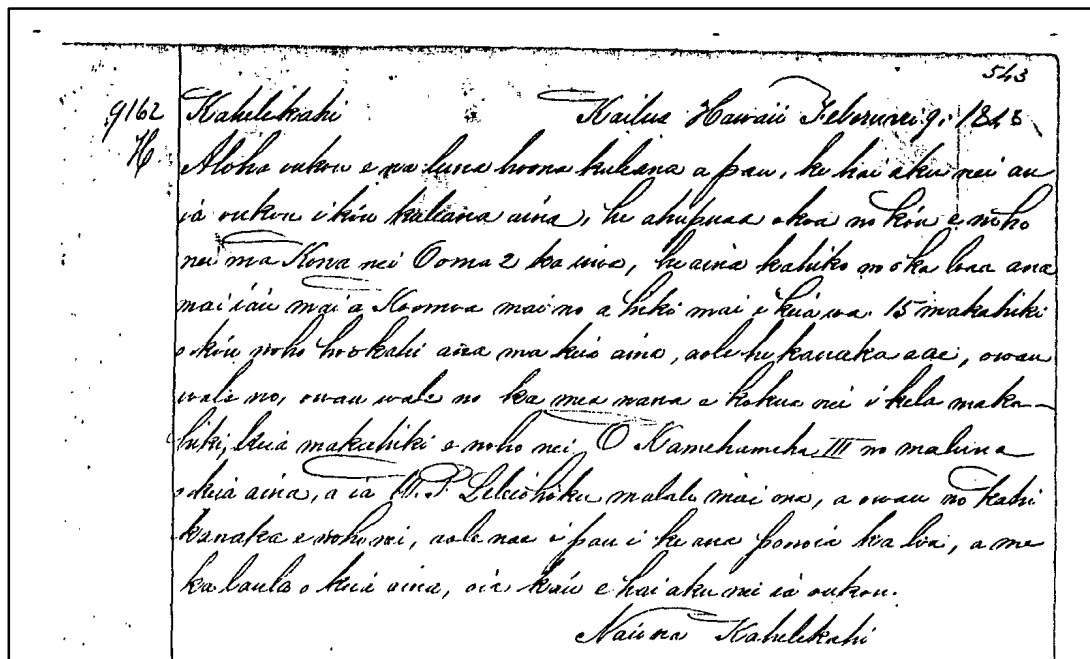 543
9162 Kahelekahi Kailua Hawaii Feberuari 9, 1848
H
Aloha oukou e na luna hoona kuleana a pau, ke hai aku nei au
ia oukou i ko'u kuleana aina, he ahupuaa okoa no ko'u e noho
nei ma Kona nei Ooma 2 ka inoa, he aina kahiko no o ka loaa ana
mai ia'u mai a Koomoa mai no a hiki mai i keia wa. 15 makahiki
o ko'u noho hookahi ana ma keia aina, aole he kanaka aae, owau
wale no, owau wale no ka mea nana e kokua nei i kela maka-
hiki, keia makahiki e noho nei. O Kamehameha III no maluna
o keia aina, a ia W. P. Leleiohoku malalo mai ona, a owau no kahi
kanaka e noho nei, aole nae i pau i ke ana ponoia ka loa, a me
ka laula o keia aina, oia ka'u e hai aku nei ia oukou.
Na'u na Kahelekahi